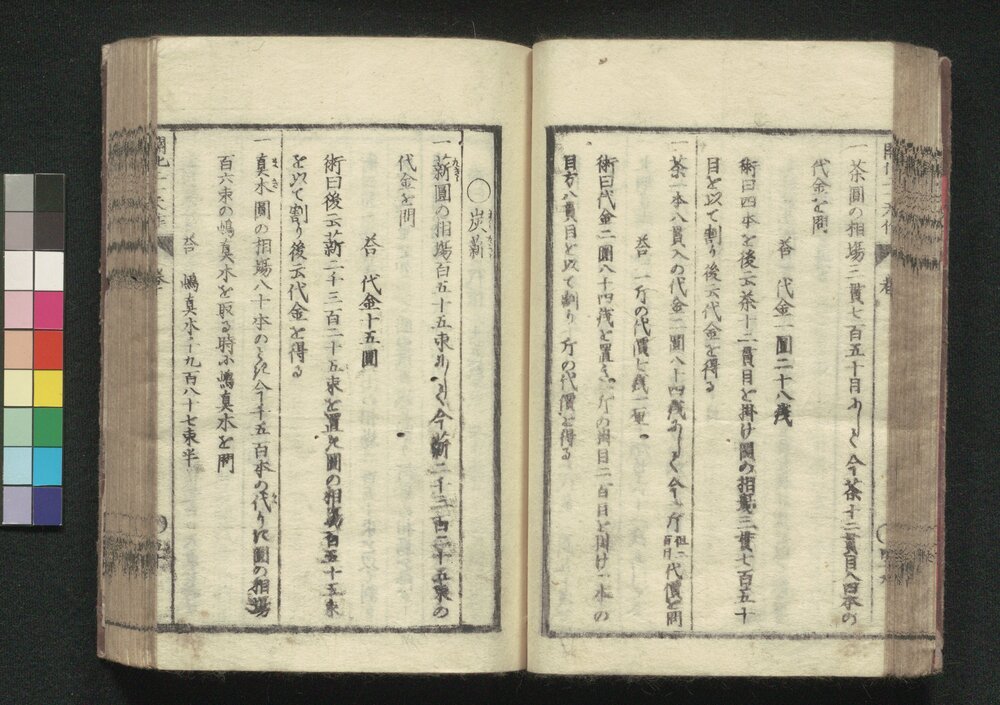 一茶圓の相場三貫七百五十目にして今茶十二貫目入四本の
代金を問
答 代金一圓二十八銭
術曰四本を後云茶十二貫目を掛け圓の相場三貫七百五十
目を以て割り後云代金を得る
一茶一本八貫入の代金二圓八十四銭にして今一斤 代價を問
答 一斤の代價七銭一厘
術曰代金二圓八十四銭を置き一斤の掛目二百目を掛け一本の
目方八貫目を以て割り一斤の代價を得る
○炭薪
一薪圓の相場百五十五束にして今薪二千三百二十五束の
代金を問
答 代金十五圓
術曰後云薪二千三百二十五束を置き圓の相場百五十五束
を以て割り後云代金を得る
一真木圓の相場八十本のとき今千五百本の代りに圓の相場
百六束の嶋真木を取る時ハ嶋真木を問
答 嶋真木千九百八十七束半